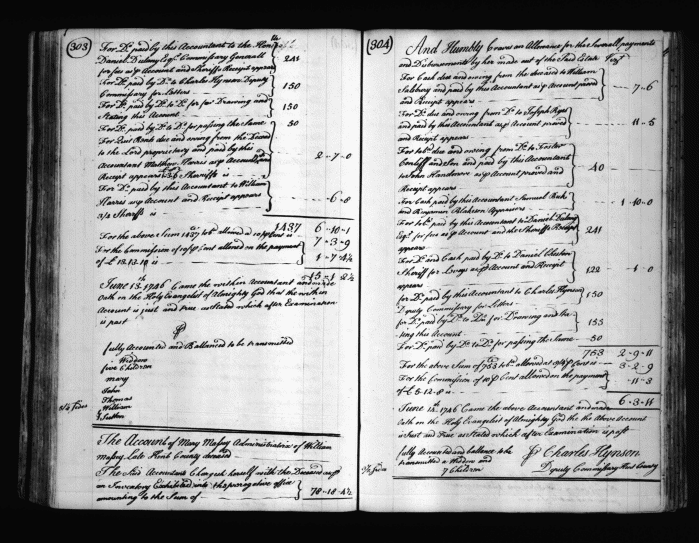 303
For Do. paid by this Accountant to the Honble
Daniel Dulany Esqr. Commissary Generall
for fees as p Account and Sheriffs Receipt appears } 241
For Do. paid by Do. to Charles Hynson Deputy
Commissary for Letters } 150
For Do. paid by Do. to Do. for Drawing and
Stating this Account } 150
For Do. paid by Do. to Do. for passing the Same 50
For Quit Rents due and owing from the Deced
to the Lord proprietary and paid by this
Accountant Matthew Harris as p Account and
Receipt appears Sheriffs is } 2-7-0
For Do. paid by this Accountant to William
Harris as p Account and Receipt appears
Sheriffs is } -6-8
1437
For the above Sum 1437 tobo. allowed at p Cent is 6-10-1
For the Commission of 10 p Cent allowed on the payment
of £ 13.13.10 is } 7-3-9
1-7-4½
15-1-2½
June 13th 1746 Came the within Accountant and made
Oath on the Holy Evangelist of Almighty God that the within
Account is just and true as stated which after Examination
is past
p
fully Accounted and Ballanced to be transmitted
Widdow
five Children
Mary
John
Thomas
William
Sides
The Account of Mary Massy Administratrix of William
Massy Late Kent County deceased
The Said Accountant Chargeth herself with the Deceaseds
an Inventory Exhibited into the prerogative office
amounting to the Sum of } 78-18-4½
304
And Humbly Craves an Allowance for the Severall payments
and Disbursments by her made out of the Said Estate Vizt.
For Cash due and owing from the deceased to William
Salsbury and paid by this Accountant as p Account proved
and Receipt appears } -7-6
For Do. due and owing from Do. to Joseph
and paid by this Accountant as p Account proved
and Receipt appears } 11-5
For tobo. due and owing from Do. to Foster
Cunliff and Son and paid by this Accountant
to John as p Account proved and
Receipt appears } 40
For Cash paid by this Accountant Samuel
and Benjamin Blakiston Appraisers } 1-10-0
For tobo. paid by this Accountant to Daniel Dulany
Esqr. for fees as p Account and the Sheriffs Receipt
appears } 241
For Do. and Cash paid by Do. to Daniel Cheston
Sheriff for Levys as p Account and Receipt
appears } 122 1-0
for Do. paid by this Accountant to Charles Hynson
Deputy Commissary for Letters } 150
for Do. paid by Do. to Do. for Drawing and Sta
ting this Account } 155
For Do. paid by Do. to Do. for passing the Same 50
753 2-9-11
For the above Sum of 753 tobo. allowed at p Cent is 3-2-9
For the Commission of 10 p Cent allowed on the payment
of £ 5-12-8 is } -11-3
6-3-11
June 13th 1746 Came the above Accountant and made
Oath on the Holy Evangelist of Almighty God that the above Account
is Just and True as stated which after Examination is past
fully accounted and ballance to be
transmitted a Widdow and
7 Children
p Charles Hynson
Deputy Commissary Kent County
Sides